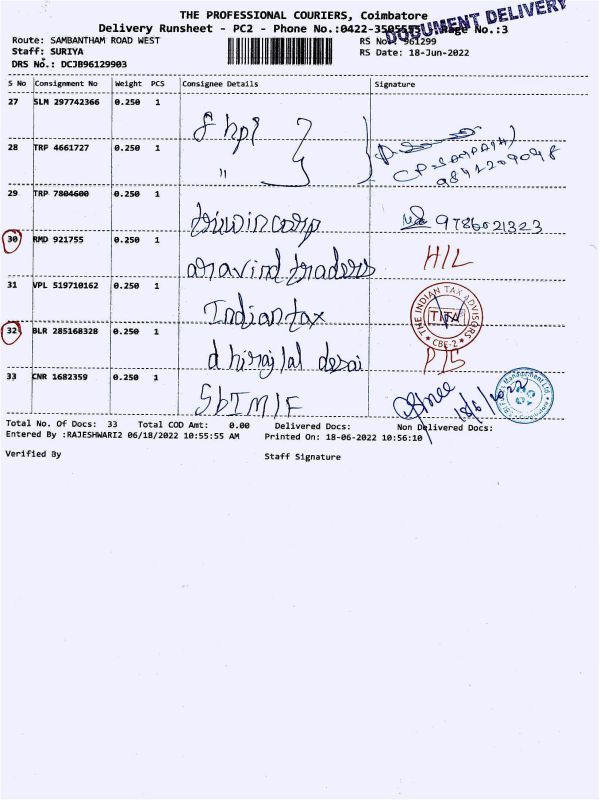 THE PROFESSIONAL COURIERS, Coimbatore
DOCUMENT DELIVERY
Delivery Runsheet - PC2 - Phone No.:0422-3505555, Page No.:3
Route: SAMBANTHAM ROAD WEST RS No.: 961299
Staff: SURIYA RS Date: 18-Jun-2022
DRS No.: DCJB96129903
S No Consignment No Weight PCS Consignee Details Signature
27 SLM 297742366 0.250 1
28 TRP 4661727 0.250 1 "
9841209098
29 TRP 7804600 0.250 1 truwincorp 9786021323
30 RMD 921755 0.250 1 aravind traders H/L
31 VPL 519710162 0.250 1 Indiantax THE INDIAN TAX ADVISORS TITA CBE-2
32 BLR 285168328 0.250 1 dhirajlal desai P/S
33 CNR 1682359 0.250 1 SbIMIF 18/6/2022
Total No. Of Docs: 33 Total COD Amt: 0.00 Delivered Docs: Non Delivered Docs:
Entered By :RAJESHWARI2 06/18/2022 10:55:55 AM Printed On: 18-06-2022 10:56:10
Verified By Staff Signature